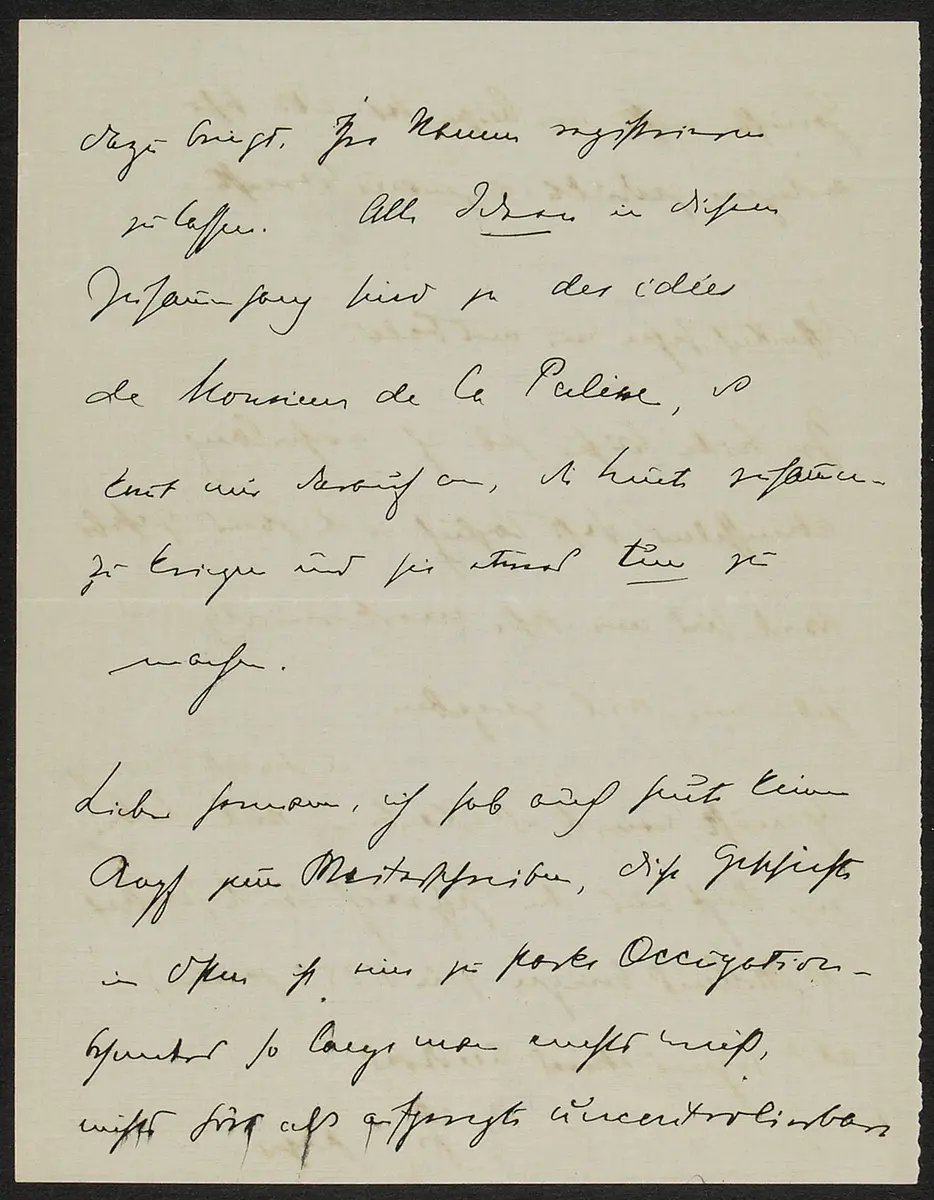 dazu bringt, Ihre Namen registrieren
zu lassen. Alle Ideen in diesem
Zusammenhang sind ja des idées
de Monsieur de la Palisse, es
kommt nur darauf an, die Leute zusammen-
zu kriegen und sie etwas tun zu
machen.
Lieber Hermann, ich hab auch heute keinen
Kopf zum Weiterschreiben, diese Geschichte
im Osten ist eine zu starke Occupation
so lange man nichts weiß,
nichts hört als aufgeregte uncontrolierbare